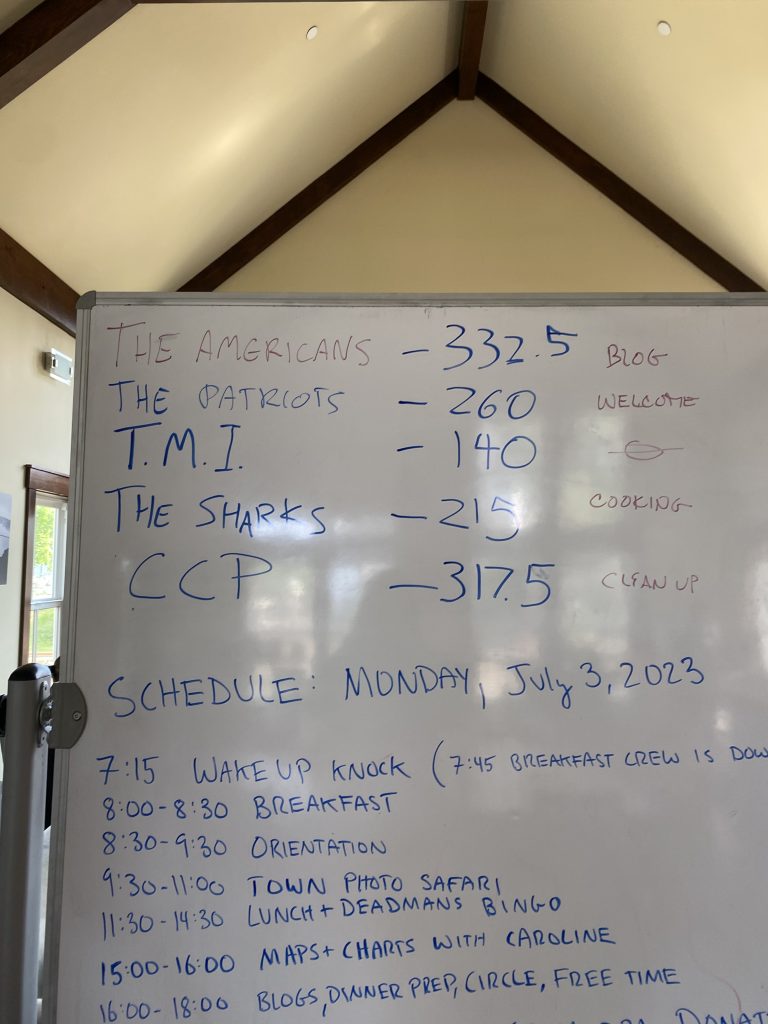 THE AMERICANS - 332.5 BLOG
THE PATRIOTS - 260 WELCOME
T.M.I. - 140
THE SHARKS - 215 COOKING
CCP - 317.5 CLEAN UP
SCHEDULE: MONDAY, July 3, 2023
7:15 WAKE UP KNOCK (7:45 BREAKFAST CREW IS DOW
8:00-8:30 BREAKFAST
8:30-9:30 ORIENTATION
9:30-11:00 TOWN PHOTO SAFARI
11:30-14:30 LUNCH + DEADMANS BINGO
15:00-16:00 MAPS + CHARTS WITH CAROLINE
16:00-18:00 BLOGS, DINNER PREP, CIRCLE, FREE TIME